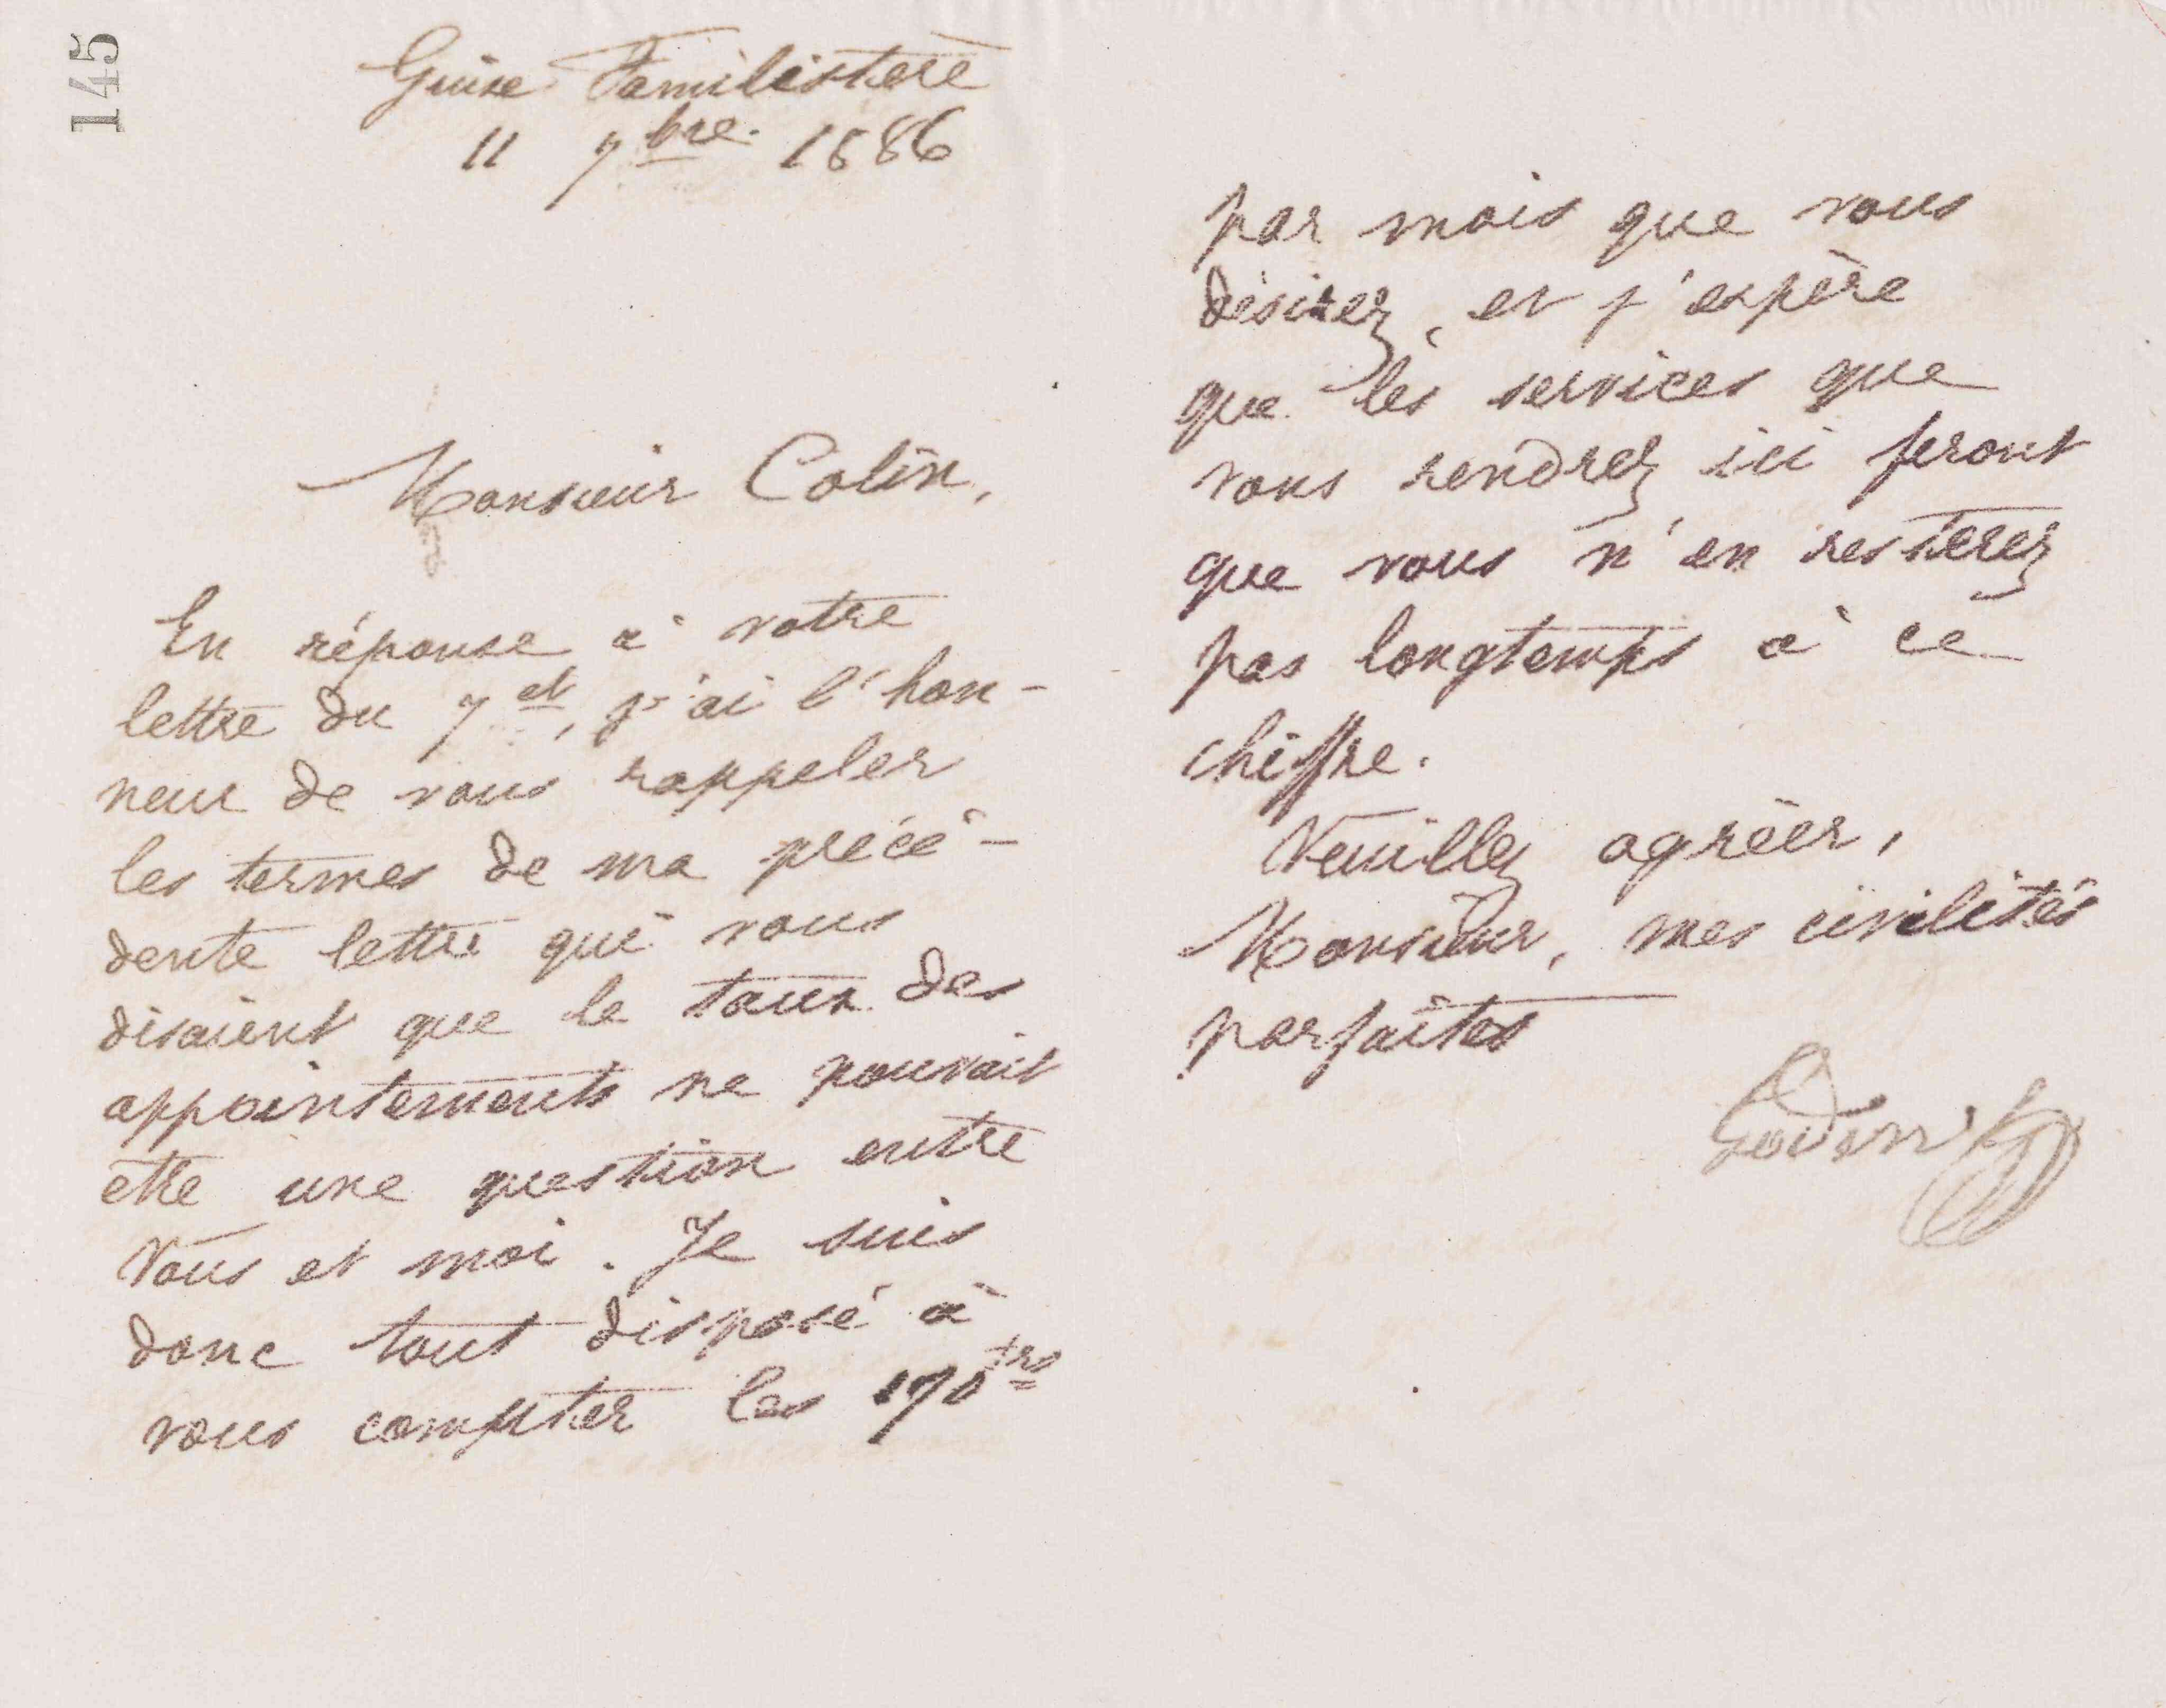 145
Guise Familistère
11 7bre. 1886
Monsieur Colin,
En réponse à votre
lettre du 7 ct, j'ai l'hon-
neur de vous rappeler
les termes de ma précé-
dente lettre qui vous
disaient que le taux des
appointements ne pouvait
être une question entre
vous et moi. Je suis
donc tout disposé à
vous compter les 170 frs
par mois que vous
désirez, et j'espère
que les services que
vous rendrez ici feront
que vous n'en resterez
pas longtemps à ce
chiffre.
Veuillez agréer,
Monsieur, mes civilités
parfaites
Godin